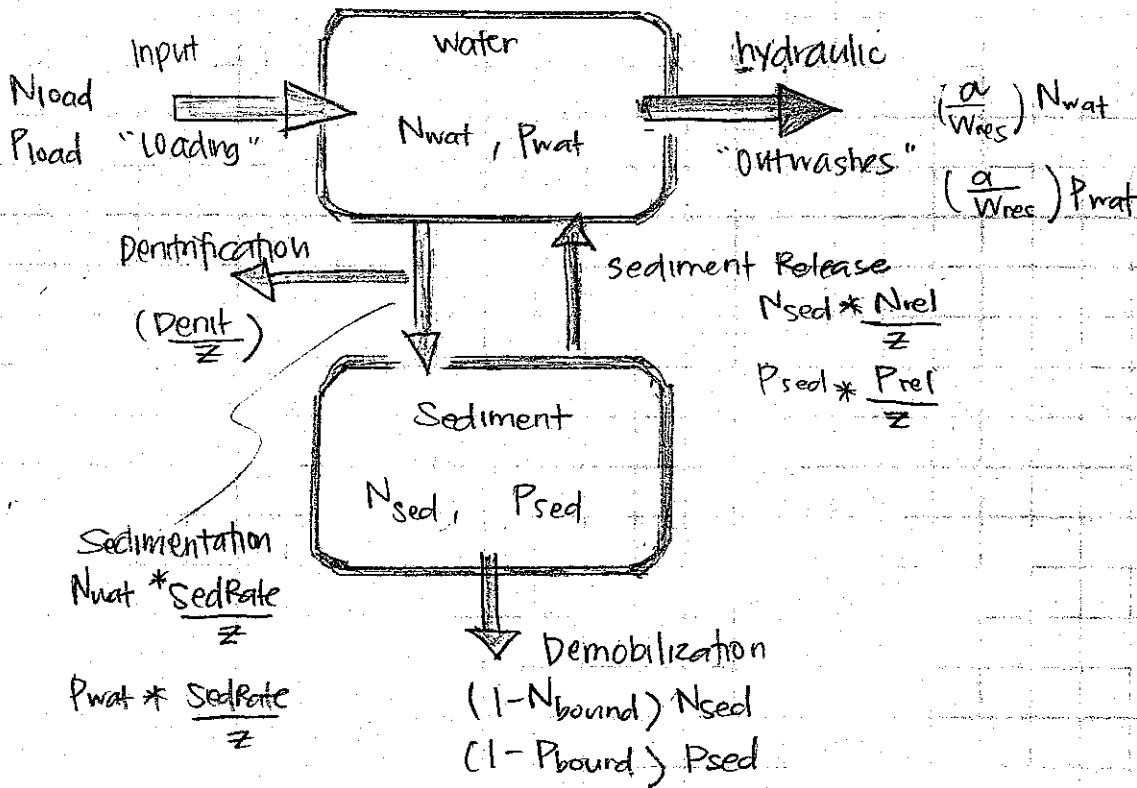 Input
Nload
Pload "Loading"
Water
Nwat, Pwat
hydraulic
"Outwashes"
(a/Wres) Nwat
(a/Wres) Pwat
Denitrification
(Denit/z)
Sediment Release
Nsed * Nrel/z
Psed * Prel/z
Sediment
Nsed, Psed
Sedimentation
Nwat * SedRate/z
Pwat * SedRate/z
Demobilization
(1-Nbound) Nsed
(1-Pbound) Psed